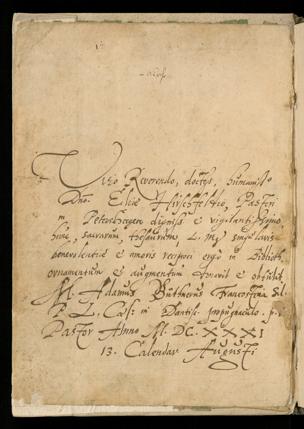 Viro Reverendo, docto, humaniss.
Dno. Eliæ Hirschfeldio, Pastori
in Petershagen digniss. & vigilantiss. homo
hunc, sacrarum, thesaurum, L. M. singularis
benevolentiæ & amoris veri ergo in Biblioth.
ornamentum & augmentum donavit & obtulit
M. Adamus Büthnerus Francostina Sil.
P. L. Cæs: in Dantisc. propugnaculo. p.t.
Pastor Anno M. DC. XXXI
13. Calendar Augusti